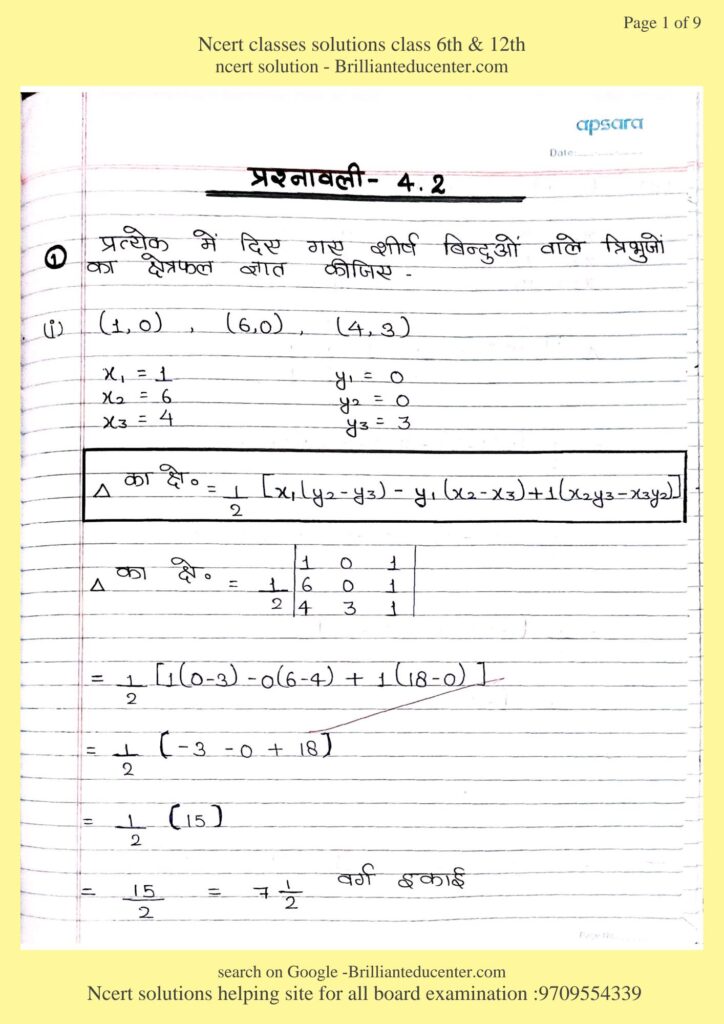 Page 1 of 9
Ncert classes solutions class 6th & 12th
ncert solution - Brillianteducenter.com
apsara
Date:
प्रश्नावली - 4.2
① प्रत्येक में दिए गए शीर्ष बिन्दुओं वाले त्रिभुजों
का क्षेत्रफल ज्ञात कीजिए -
(i) (1,0) , (6,0) , (4,3)
x₁ = 1 y₁ = 0
x₂ = 6 y₂ = 0
x₃ = 4 y₃ = 3
△ का क्षे॰ = 1/2 [x₁(y₂-y₃) - y₁(x₂-x₃)+1(x₂y₃-x₃y₂)]
△ का क्षे॰ = 1/2 | 1 0 1 |
| 6 0 1 |
| 4 3 1 |
= 1/2 [1(0-3) -0(6-4) + 1(18-0)]
= 1/2 [-3 -0 + 18]
= 1/2 [15]
= 15/2 = 7 1/2 वर्ग इकाई
search on Google -Brillianteducenter.com
Ncert solutions helping site for all board examination :9709554339